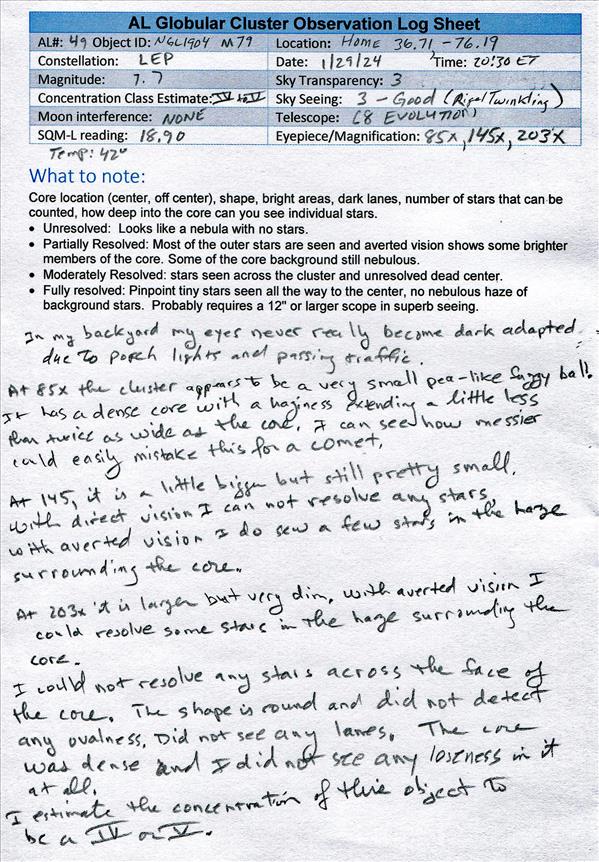 AL Globular Cluster Observation Log Sheet
AL#: 49 Object ID: NGC1904 M79 Location: Home 36.71, -76.19
Constellation: LEP Date: 1/29/24 Time: 20:30 ET
Magnitude: 7.7 Sky Transparency: 3
Concentration Class Estimate: IV to V Sky Seeing: 3 - Good (Rigel Twinkling)
Moon interference: NONE Telescope: C8 EVOLUTION
SQM-L reading: 18.90 Eyepiece/Magnification: 85x, 145x, 203x
Temp: 42°
What to note:
Core location (center, off center), shape, bright areas, dark lanes, number of stars that can be
counted, how deep into the core can you see individual stars.
• Unresolved: Looks like a nebula with no stars.
• Partially Resolved: Most of the outer stars are seen and averted vision shows some brighter
members of the core. Some of the core background still nebulous.
• Moderately Resolved: stars seen across the cluster and unresolved dead center.
• Fully resolved: Pinpoint tiny stars seen all the way to the center, no nebulous haze of
background stars. Probably requires a 12" or larger scope in superb seeing.
In my backyard my eyes never really become dark adapted
due to porch lights and passing traffic.
At 85x the cluster appears to be a very small pea-like fuzzy ball.
It has a dense core with a haziness extending a little less
than twice as wide as the core. I can see how messier
could easily mistake this for a comet.
At 145, it is a little bigger but still pretty small.
With direct vision I can not resolve any stars,
with averted vision I do sew a few stars in the haze
surrounding the core.
At 203x it is larger but very dim, with averted vision I
could resolve some stars in the haze surrounding the
core.
I could not resolve any stars across the face of
the core. The shape is round and did not detect
any ovalness. Did not see any lanes. The core
was dense and I did not see any loseness in it
at all.
I estimate the concentration of this object to
be a IV or V.